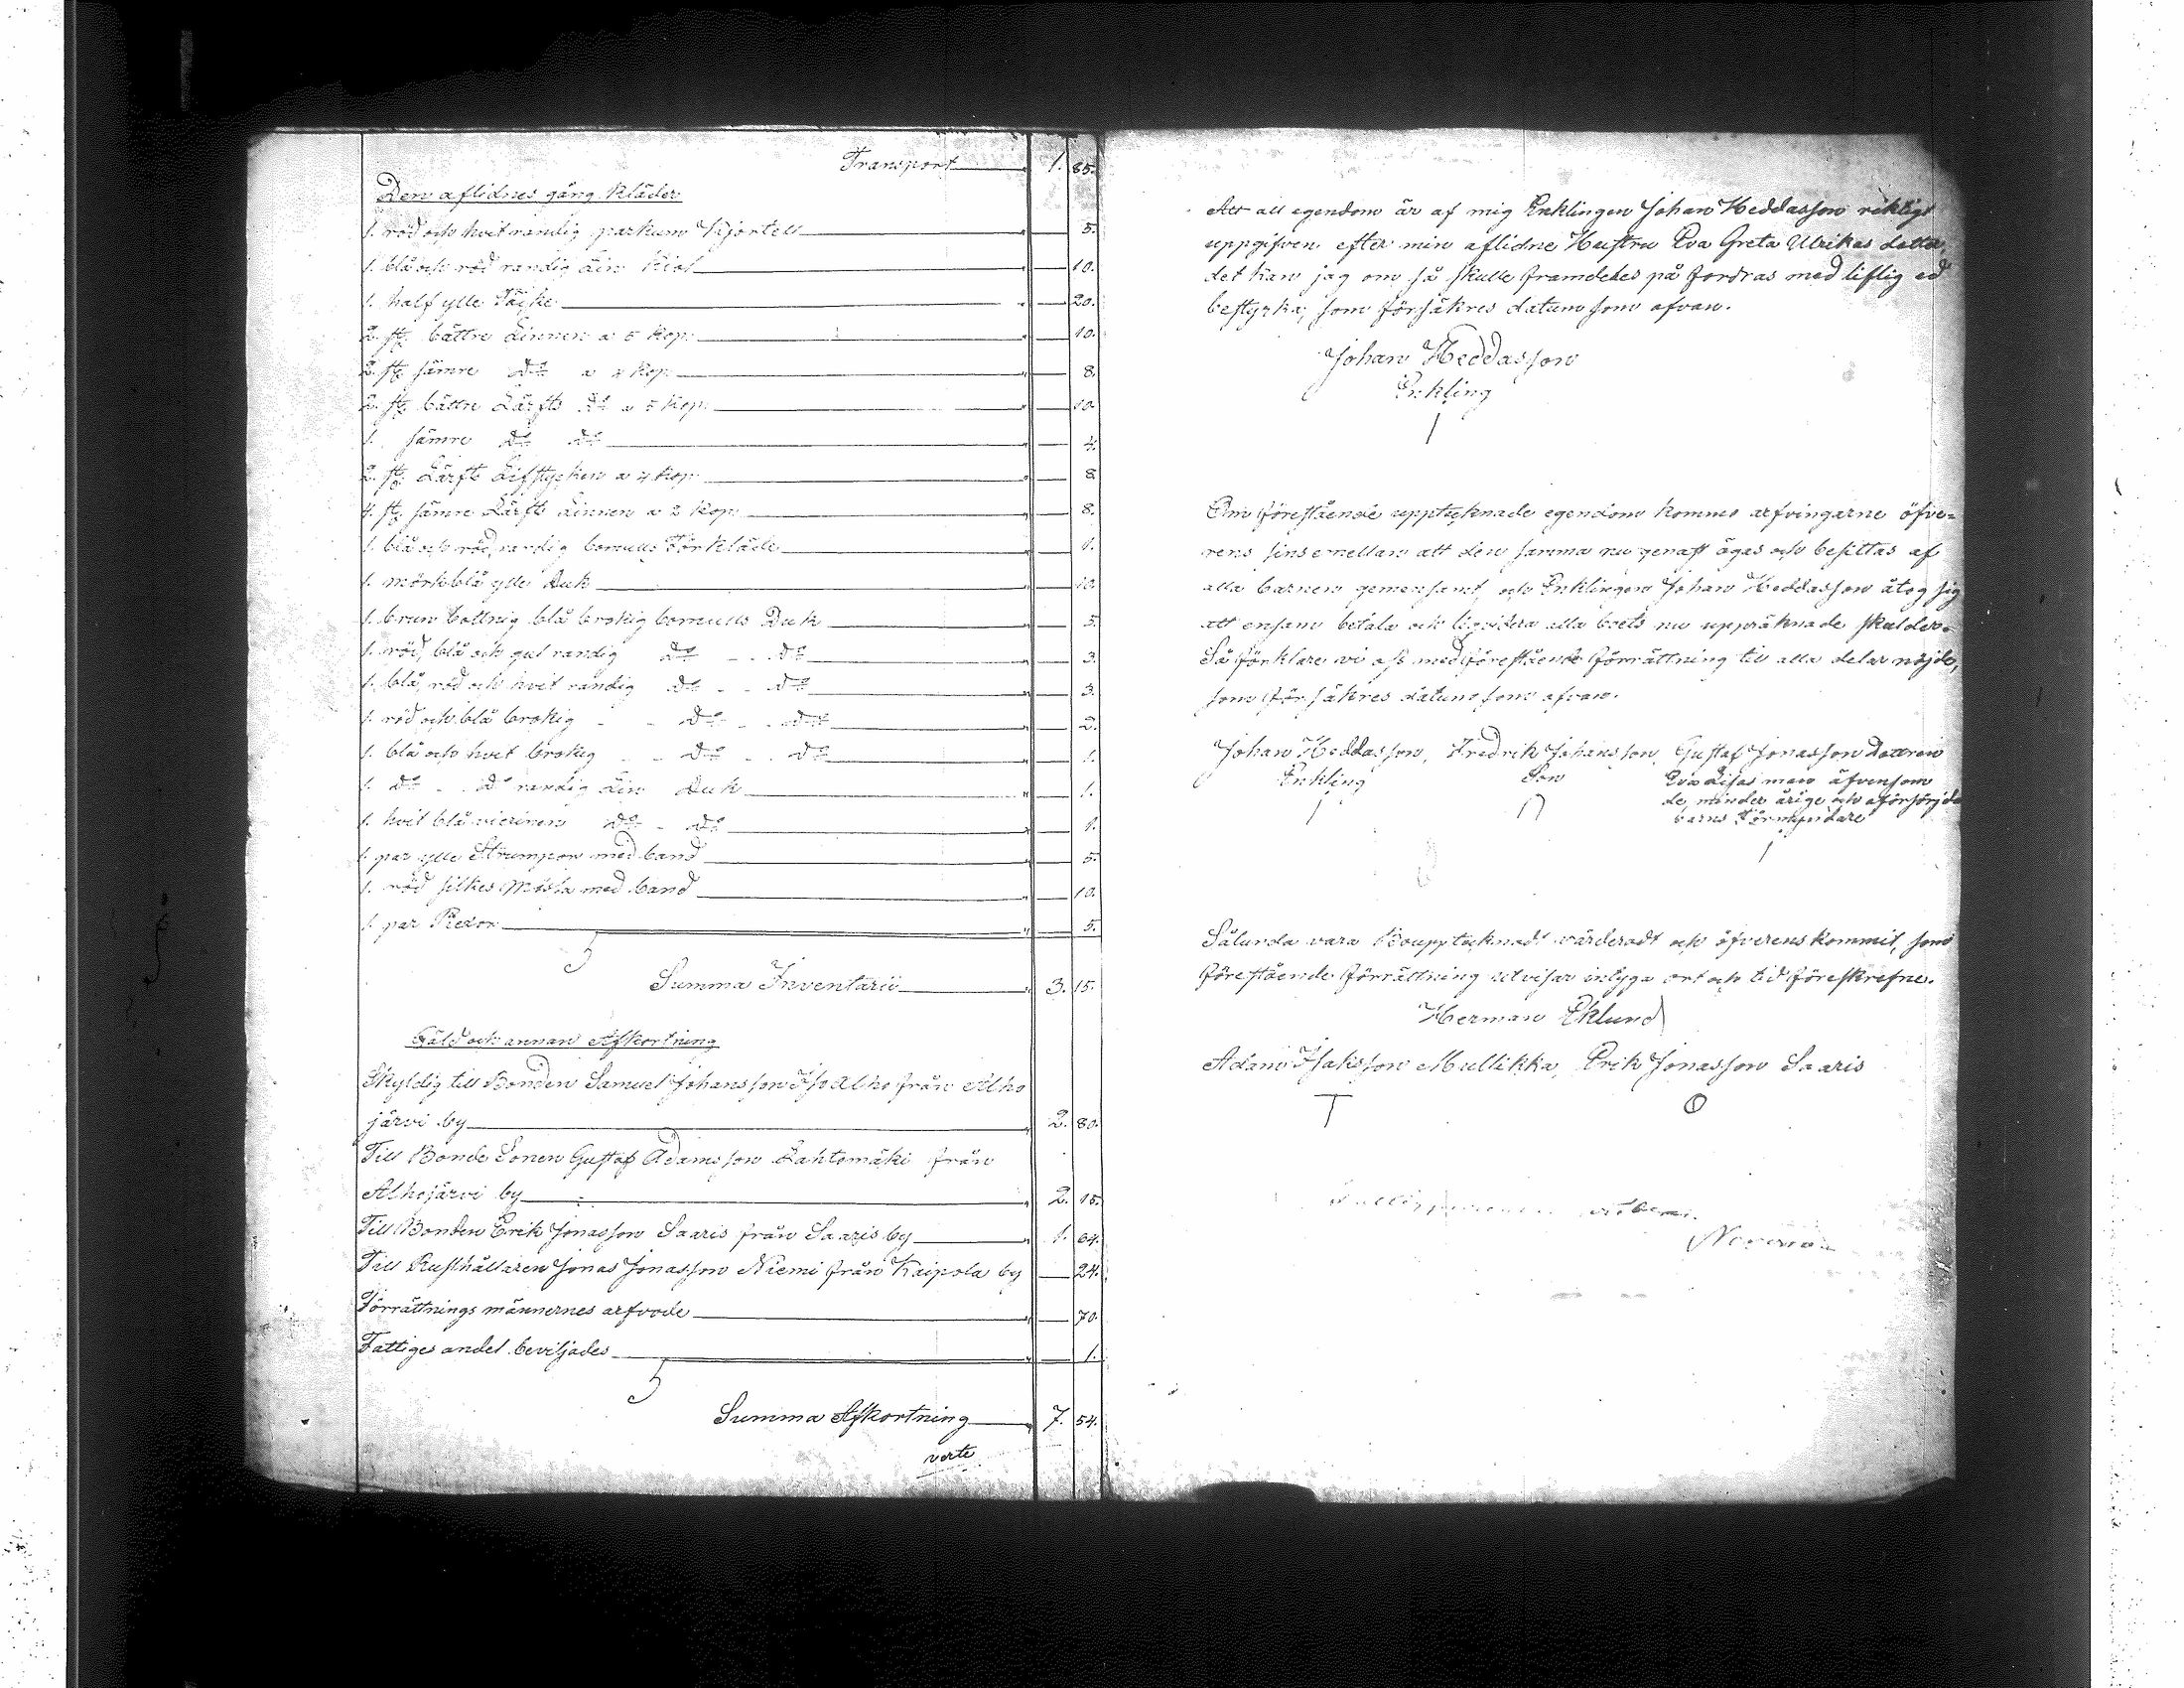 Transport 1. 85.
Den aflidnes gång kläder
1. röd och hvit randig parkum Kjortell 5.
1. blå och röd randig Lin Kiol 10.
1. half ylle Tröje 20.
2. st. bättre Linnen a 5 Kop. 10.
2. st. sämre do a 4 Kop. 8.
2. st. bättre Lärfts do a 5 Kop. 10.
1. sämre do do 4.
2. st. Lärfts Lifstycken a 4 Kop. 8
4. st. sämre Lärfts Linnen a 2 Kop. 8.
1. blå och röd randig bomulls Förkläde 1.
1. mörkblå ylle Duk 10.
1. brun bottnig blå brokig bomulls Duk 5.
1. röd, blå och gul randig do - . do 3.
1. blå, röd och hvit randig do - - do 3.
1. röd och blå brokig - - do - . do 2.
1. blå och hvit brokig - - do - . do 1.
1. do - . do randig Lin Duk 1.
1. hvit blå do - do 1.
1. par ylle Strumpor med band 5.
1. röd silkes Mössa med band 10.
1. par 5.
Summa Inventarii 3. 15.
Gäld och annan Afkortning
Skyldig till Bonden Samuel Johansson Iso Alho från Alho
järvi by 2. 80.
Till Bonde Sonen Gustaf Adamsson Lahtomäki från
Alhojärvi by 2. 15.
Till Bonden Erik Jonasson Saaris från Saaris by 1. 64.
Till Rusthållaren Jonas Jonasson Niemi från Kaipola by 24.
Förrättnings männernes arfvode 70.
Fattiges andel beviljades 1.
Summa Afkortning 7. 54.
verte
Att all egendom är af mig Enklingen Johan Heddasson riktigt
uppgifven efter min aflidne Hustru Eva Greta Ulrikas detta,
det kan jag om så skulle framdeles på fordras med liflig ed
bestyrka; som försäkres datum som ofvan.
Johan Heddasson
Enkling
Om förestående upptecknade egendom komma arfvingarne öfve=
rens sins emellan att den samma nu genast äges och besittas af
alla barnen gemensamt, och Enklingen Johan Heddasson åtog sig
att ensam betala och liqvidera alla boets nu uppräknade skulder.
Så förklare vi oss med förestående förrättning till alla delar nöjde,
som försäkres datum som ofvan.
Johan Heddasson, Fredrik Johansson, Gustaf Jonasson Dottren
Enkling Son Eva Lisas man äfvensom
de minder årige och oförsörjde
barns Förmyndare
Sålunda vara Boupptecknadt värderadt och öfverenskommit, som
förestående förrättning utvisar intyga ort och tid föreskrefne.
Herman Eklund
Adam Isaksson Mullikka, Erik Jonasson Saaris